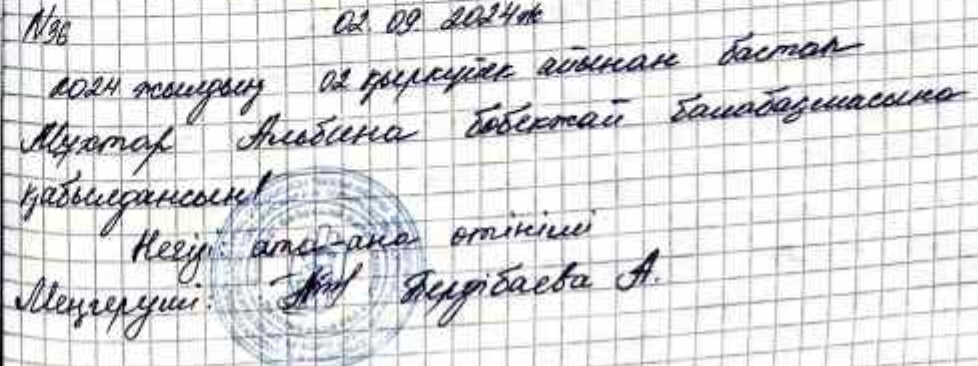 №36 02.09.2024ж
2024 жылдың 02 қыркүйек айынан бастап
Мұхтар Альбина бөбекжай балабақшасына
қабылдансын!
Негізі: ата-ана өтініші
Меңгеруші: Бердібаева А.